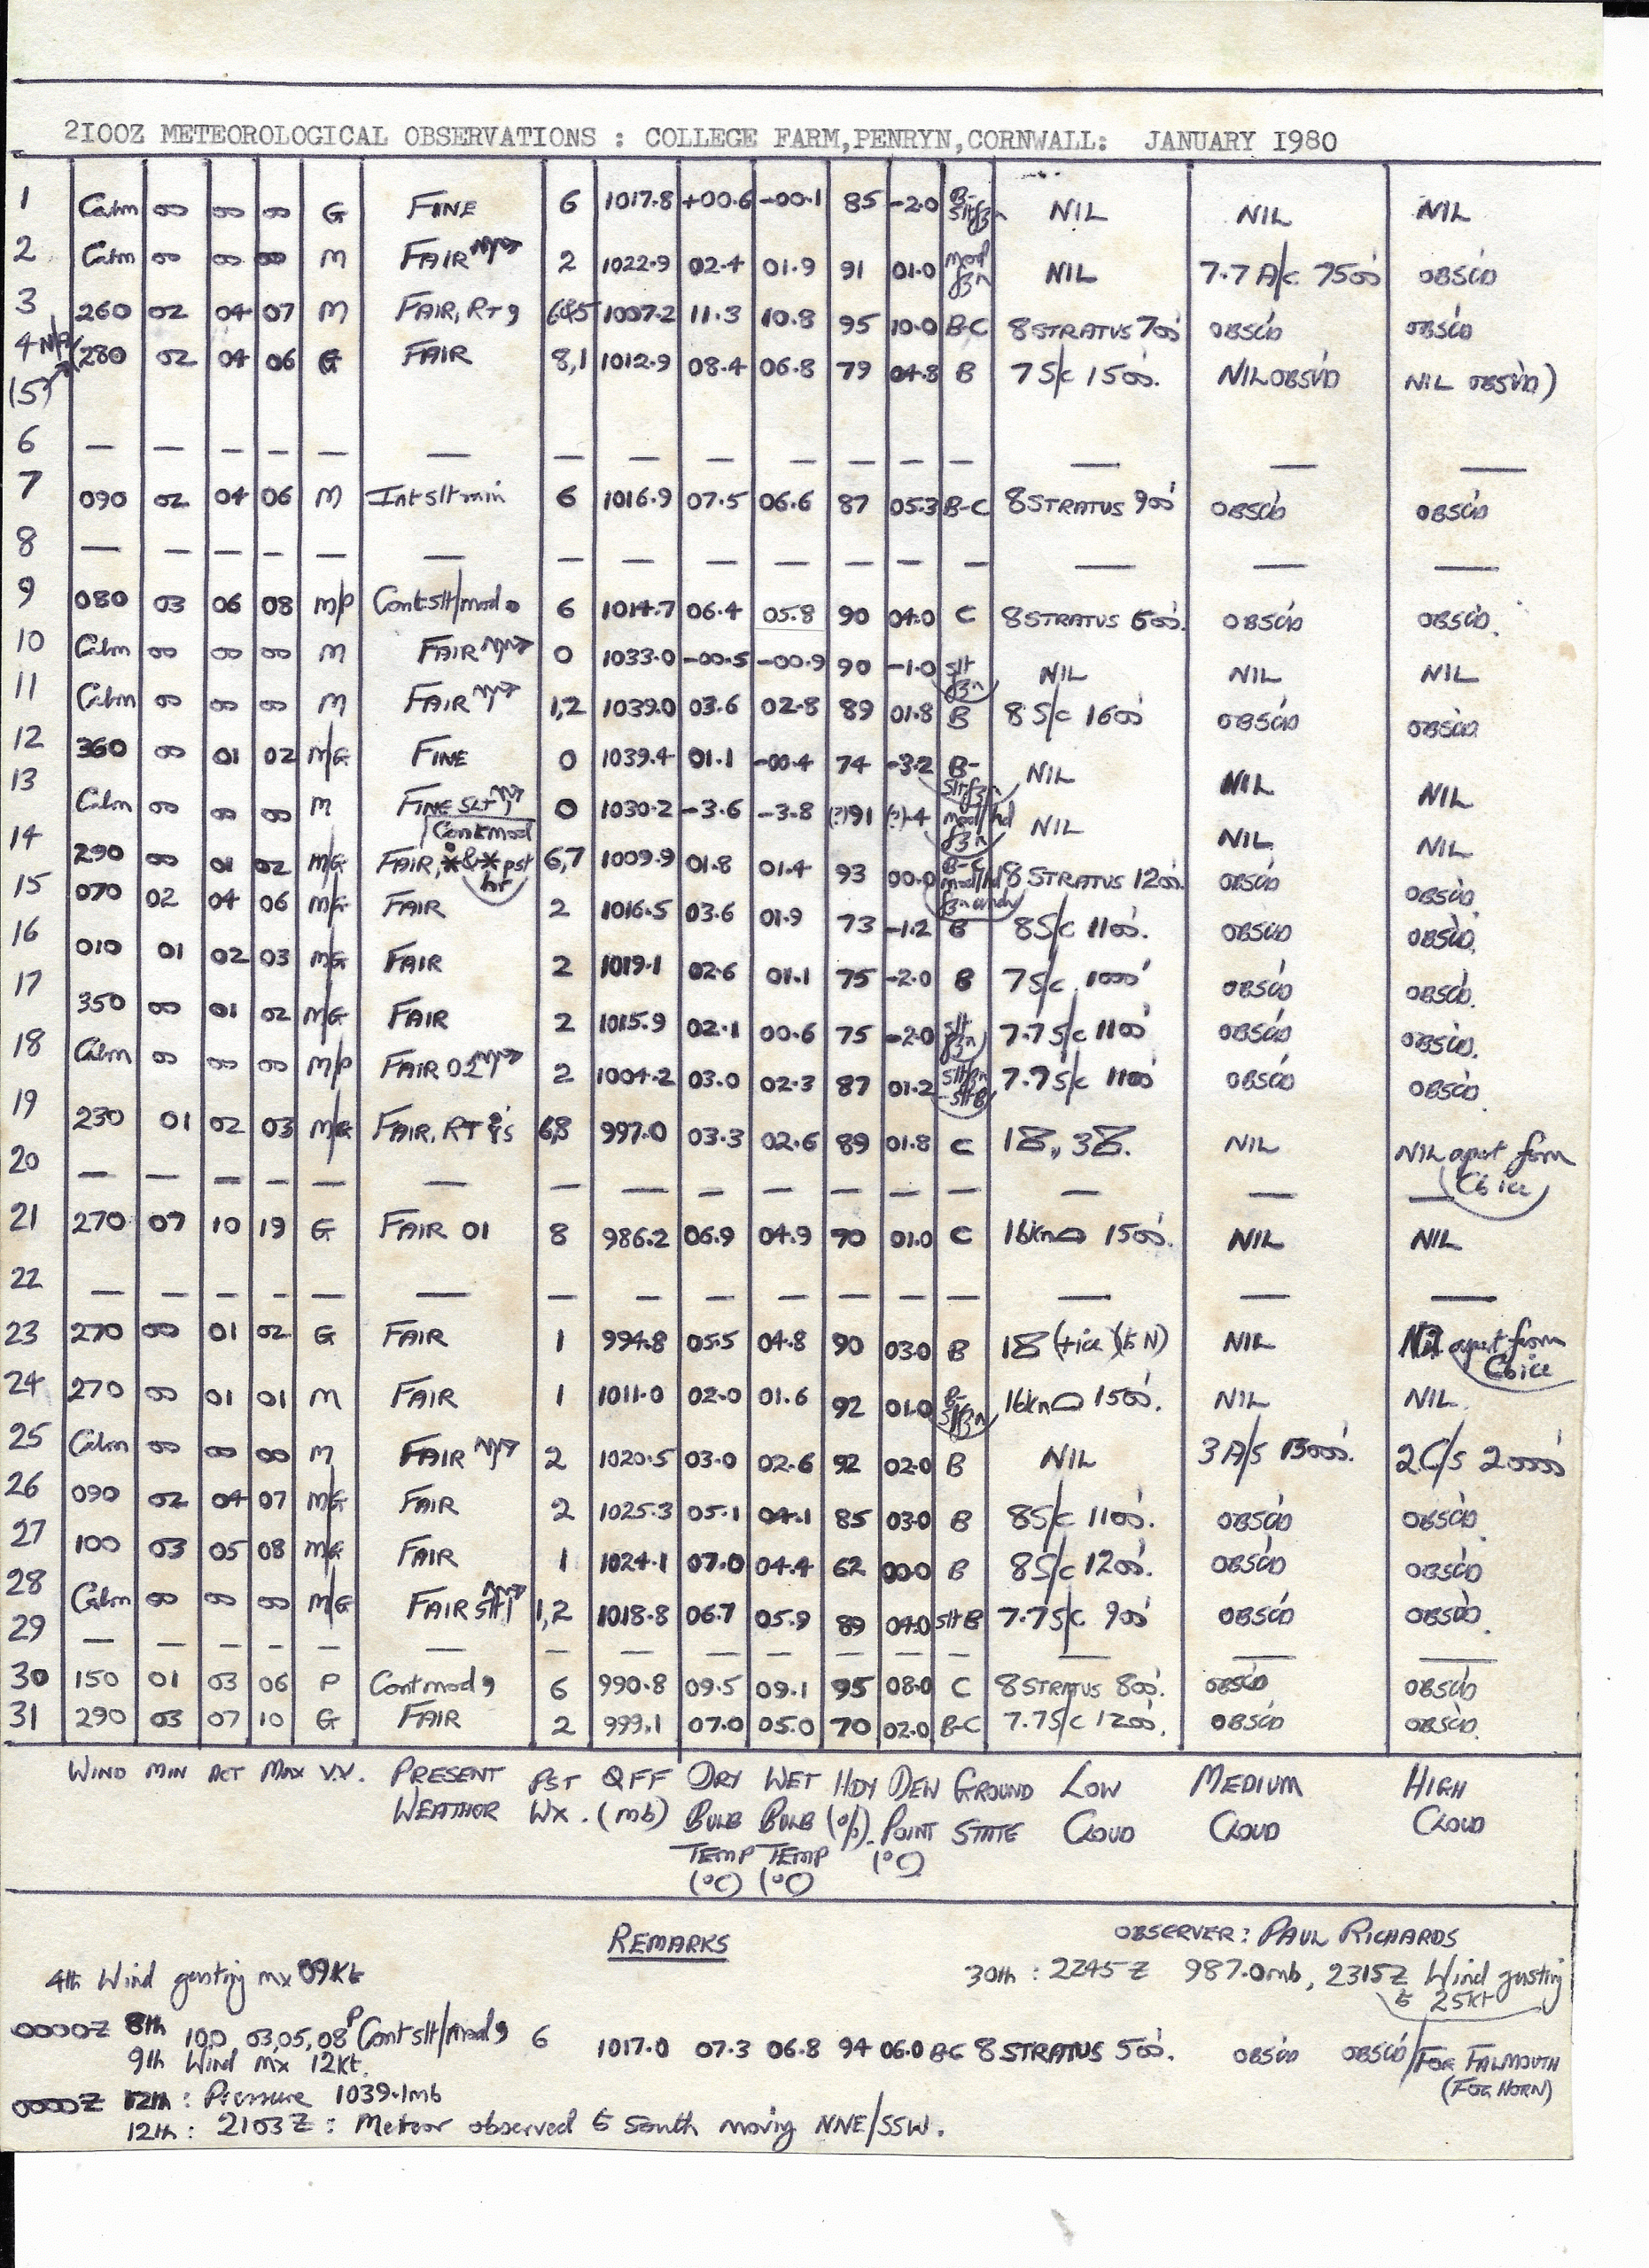 2100Z METEOROLOGICAL OBSERVATIONS : COLLEGE FARM,PENRYN,CORNWALL: JANUARY 1980
1 Calm 00 00 00 G FINE 6 1017.8 +00.6 -00.1 85 -2.0 B- slt fzn NIL NIL NIL
2 Calm 00 00 00 M FAIR 2 1022.9 02.4 01.9 91 01.0 mod fzn NIL 7.7 A/c 7500' OBSC'D
3 260 02 04 07 M FAIR, RT 9 6&5 1007.2 11.3 10.8 95 10.0 B-C 8 STRATUS 700' OBSC'D OBSC'D
4 N/A
(5 280 02 04 06 G FAIR 8,1 1012.9 08.4 06.8 79 04.8 B 7 S/c 1500'. NIL OBSV'D NIL OBSV'D)
6 — — — — — — — — — — — — — — — —
7 090 02 04 06 M Int slt rain 6 1016.9 07.5 06.6 87 05.3 B-C 8 STRATUS 900' OBSC'D OBSC'D
8 — — — — — — — — — — — — — — — —
9 080 03 06 08 M/P Cont slt/mod 6 1014.7 06.4 05.8 90 04.0 C 8 STRATUS 600'. OBSC'D OBSC'D.
10 Calm 00 00 00 M FAIR 0 1033.0 -00.5 -00.9 90 -1.0 slt fzn NIL NIL NIL
11 Calm 00 00 00 M FAIR 1,2 1039.0 03.6 02.8 89 01.8 B 8 S/c 1600' OBSC'D OBSC'D
12 360 00 01 02 M/G FINE 0 1039.4 01.1 -00.4 74 -3.2 B- slt fzn NIL NIL NIL
13 Calm 00 00 00 M FINE SLT 0 1030.2 -3.6 -3.8 (?)91 (?)-4 mod/hd fzn NIL NIL NIL
14 290 00 01 02 M/G FAIR, Cont mod * & * pst hr 6,7 1009.9 01.8 01.4 93 00.0 B-C mod/hd fzn 8 STRATUS 1200'. OBSC'D OBSC'D
15 070 02 04 06 M/G FAIR 2 1016.5 03.6 01.9 73 -1.2 B 8 S/c 1100'. OBSC'D OBSC'D.
16 010 01 02 03 M/G FAIR 2 1019.1 02.6 01.1 75 -2.0 B 7 S/c 1000' OBSC'D OBSC'D.
17 350 00 01 02 M/G FAIR 2 1015.9 02.1 00.6 75 -2.0 slt fzn 7.7 S/c 1100' OBSC'D OBSC'D.
18 Calm 00 00 00 M/P FAIR 02 2 1004.2 03.0 02.3 87 01.2 slt fzn - slt B 7.7 S/c 1100' OBSC'D OBSC'D.
19 230 01 02 03 M/G FAIR, RT 6,8 997.0 03.3 02.6 89 01.8 C NIL NIL apart from Cb ice
20 — — — — — — — — — — — — — — — —
21 270 07 10 19 G FAIR 01 8 986.2 06.9 04.9 70 01.0 C 1500'. NIL NIL
22 — — — — — — — — — — — — — — — —
23 270 00 01 02 G FAIR 1 994.8 05.5 04.8 90 03.0 B (+ice)(to N) NIL Nil apart from Cb ice
24 270 00 01 01 M FAIR 1 1011.0 02.0 01.6 92 01.0 B- slt fzn 1500'. NIL NIL.
25 Calm 00 00 00 M FAIR 2 1020.5 03.0 02.6 92 02.0 B NIL 3 A/s 13000'. 2 C/s 20000'
26 090 02 04 07 M/G FAIR 2 1025.3 05.1 04.1 85 03.0 B 8 S/c 1100'. OBSC'D OBSC'D.
27 100 03 05 08 M/G FAIR 1 1024.1 07.0 04.4 62 00.0 B 8 S/c 1200'. OBSC'D OBSC'D
28 Calm 00 00 00 M/G FAIR slt 1,2 1018.8 06.7 05.9 89 04.0 slt B 7.7 S/c 900' OBSC'D OBSC'D.
29 — — — — — — — — — — — — — — — —
30 150 01 03 06 P Cont mod 9 6 990.8 09.5 09.1 95 08.0 C 8 STRATUS 800'. OBSC'D OBSC'D
31 290 03 07 10 G FAIR 2 999.1 07.0 05.0 70 02.0 B-C 7.7 S/c 1200'. OBSC'D OBSC'D.
WIND MIN ACT MAX V.V. PRESENT PST QFF DRY WET HDY DEW GROUND LOW MEDIUM HIGH
WEATHER WX. (mb) BULB BULB (%). POINT STATE CLOUD CLOUD CLOUD
TEMP TEMP (°C)
(°C) (°C)
REMARKS
OBSERVER: PAUL RICHARDS
4th Wind gusting mx 09Kt
30th : 2245Z 987.0mb, 2315Z Wind gusting
to 25Kt
0000Z 8th 100 03,05,08 P Cont slt/mod 9 6 1017.0 07.3 06.8 94 06.0 BC 8 STRATUS 500'. OBSC'D OBSC'D/FOR FALMOUTH
(FOG HORN)
9th Wind mx 12Kt.
0000Z 12th : Pressure 1039.1mb
12th : 2103Z : Meteor observed to South moving NNE/SSW.